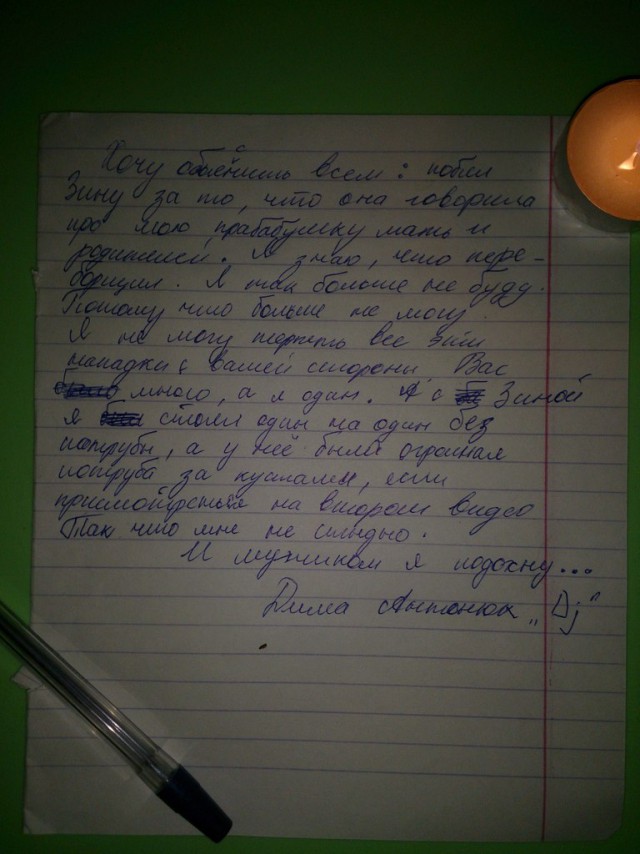 Хочу обьёснить всем: побил
Зину за то, что она говорила
про мою прабабушку мать и
родителей. Я знаю, что пере-
борщил. Я так больше не буду.
Потому что больше не могу.
Я не могу терпеть все эти
нападки с вашей стороны. Вас
много, а я один. А с Зиной
я стоял один на один без
патрубы, а у неё была огромная
потруба за кустами, если
присмотреться на втором видео
Так что мне не стыдно.
И мужиком я подохну...
Дима Антонюк „Dj"